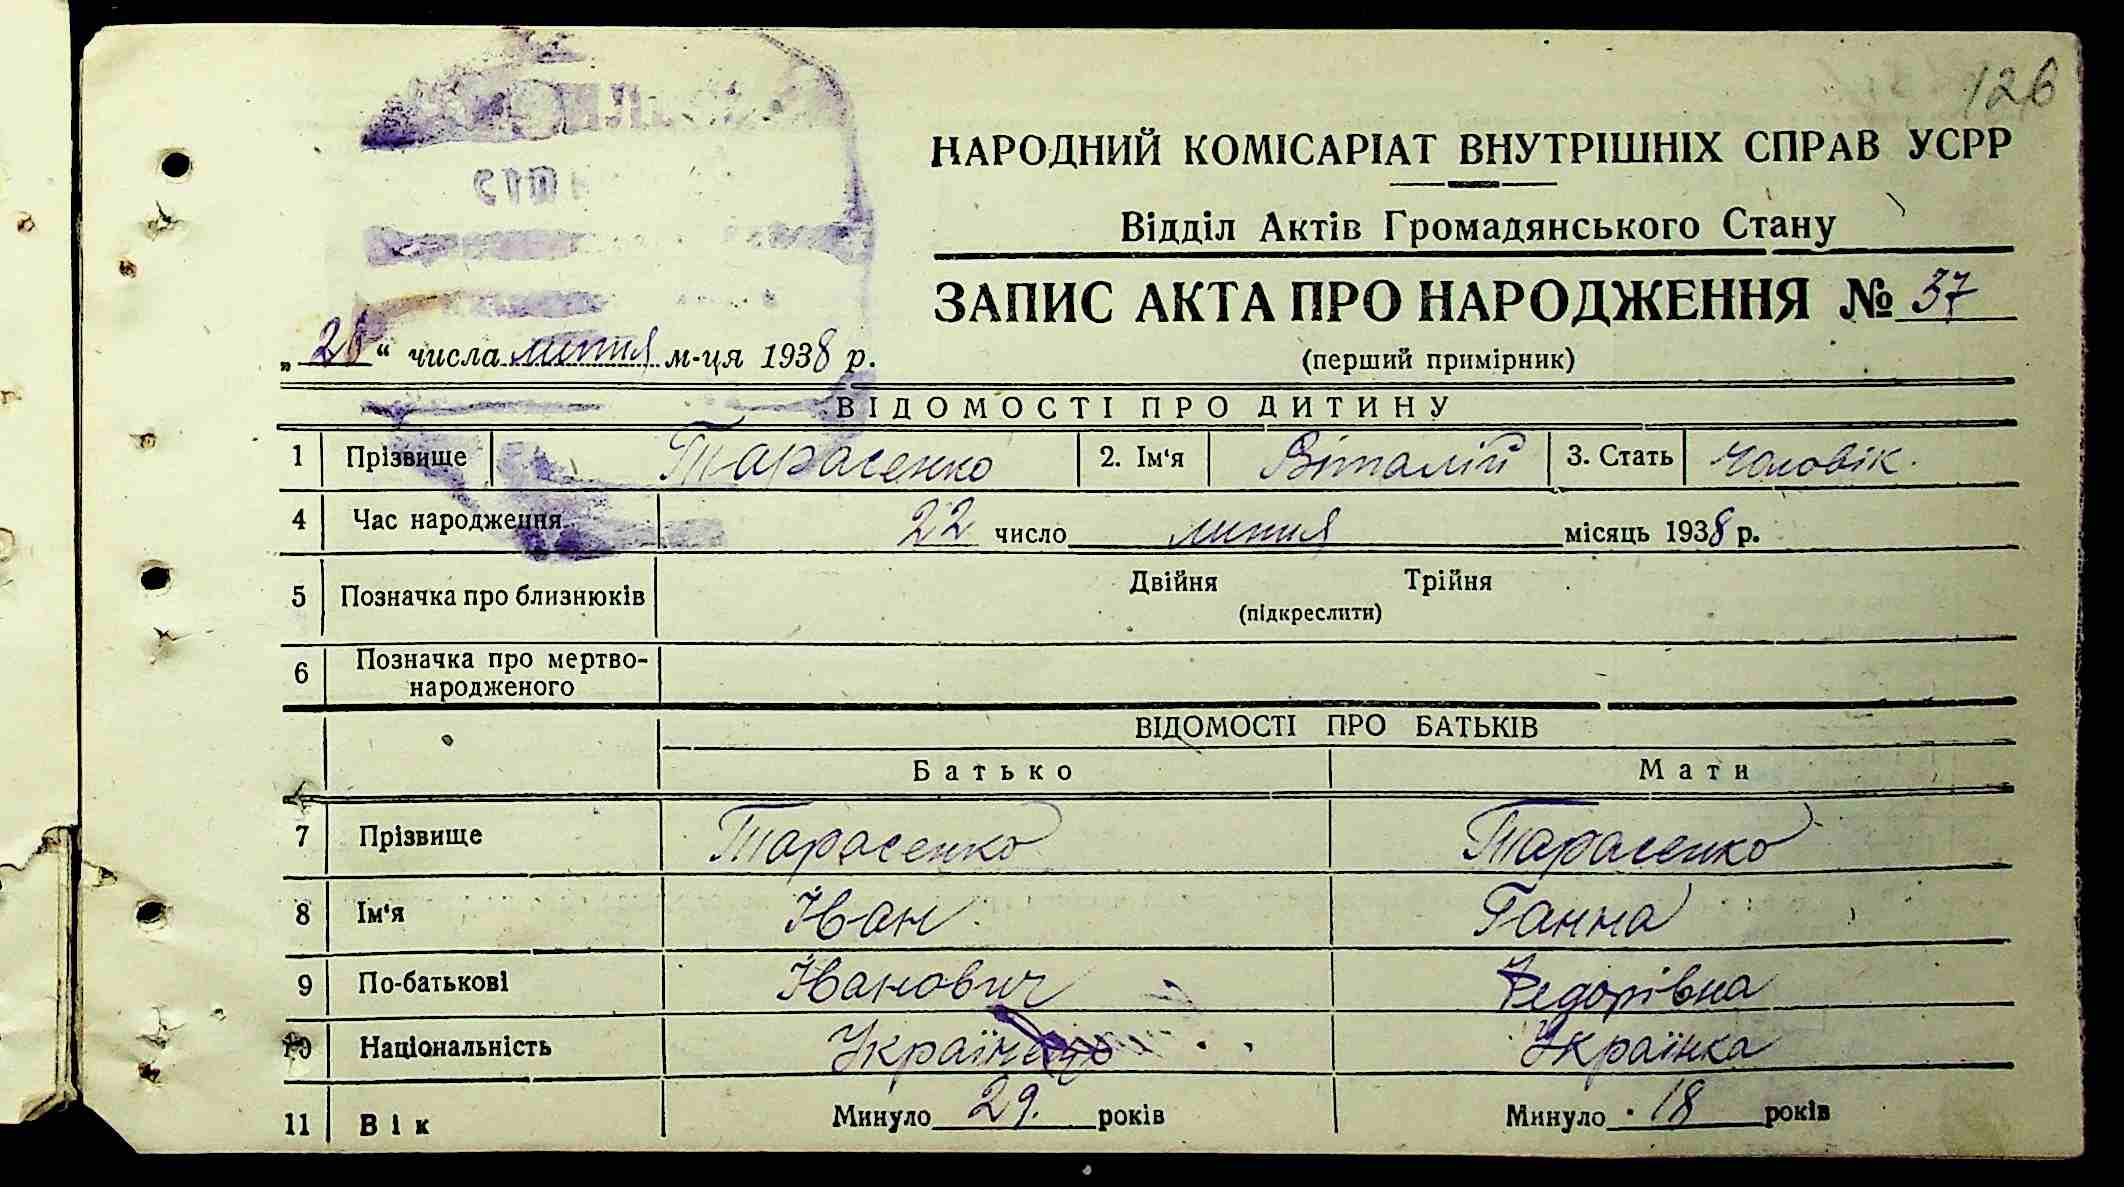 126
НАРОДНИЙ КОМІСАРІАТ ВНУТРІШНІХ СПРАВ УСРР
Відділ Актів Громадянського Стану
ЗАПИС АКТА ПРО НАРОДЖЕННЯ № 37
(перший примірник)
„ “ числа липня м-ця 1938 р.
ВІДОМОСТІ ПРО ДИТИНУ
1 Прізвище Тарасенко 2. Ім‘я Віталій 3. Стать чоловік.
4 Час народження 22 число липня місяць 1938 р.
5 Позначка про близнюків Двійня Трійня
(підкреслити)
6 Позначка про мертво-
народженого
ВІДОМОСТІ ПРО БАТЬКІВ
Батько Мати
7 Прізвище Тарасенко Тарасенко
8 Ім‘я Іван Ганна
9 По-батькові Іванович Федорівна
10 Національність Українець Українка
11 Вік Минуло 29. років Минуло 18 років